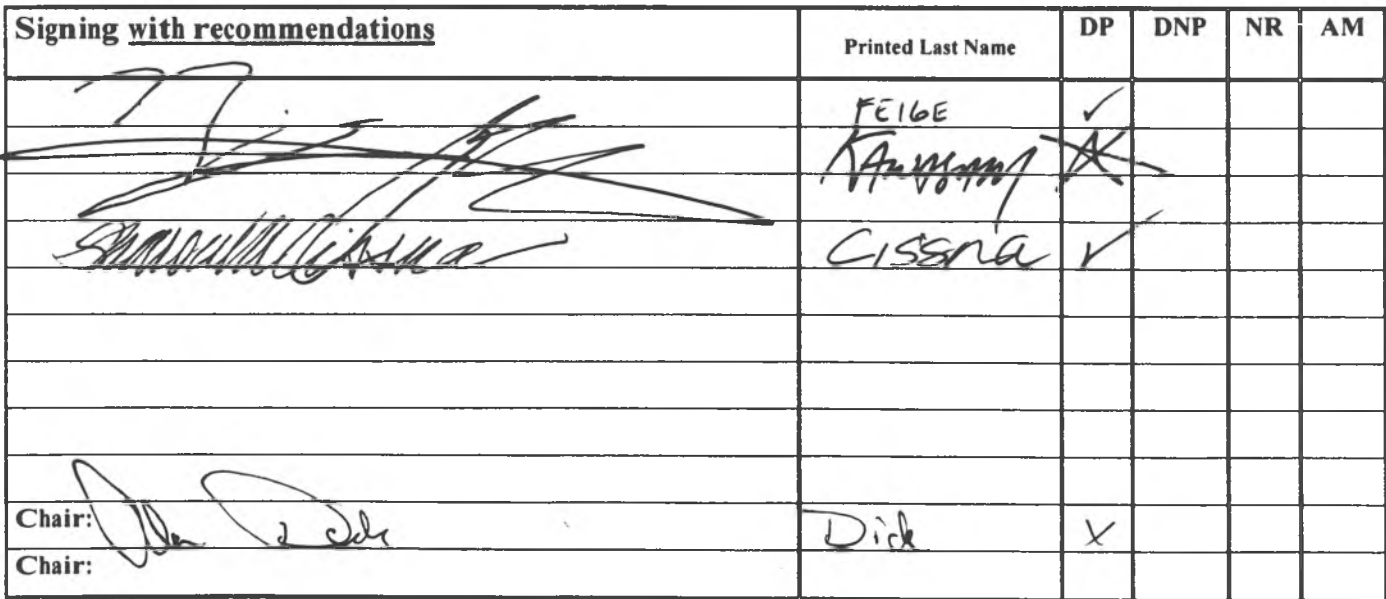 Signing with recommendations Printed Last Name DP DNP NR AM
FEIGE ✓
Sharon M Cissna Cissna ✓
Chair: Alan Dick Dick X
Chair: